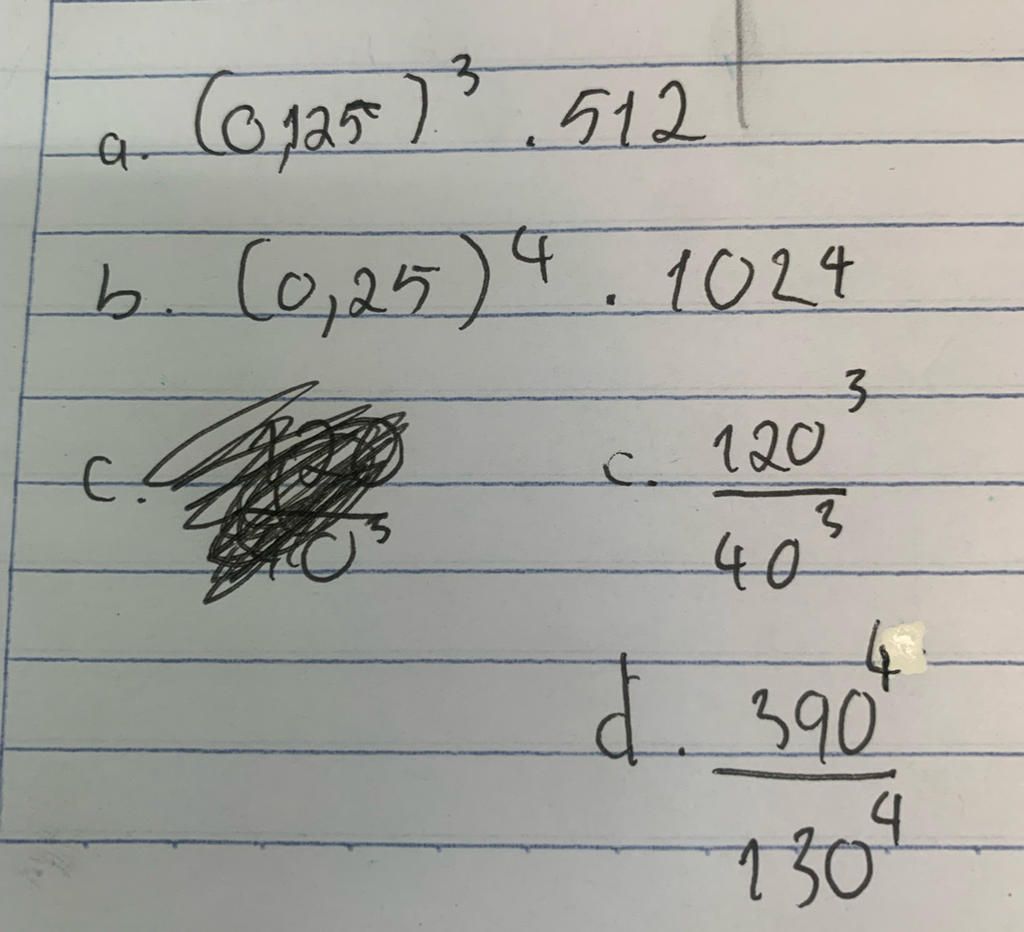 a. (0,125)³ . 512
b. (0,25)⁴ . 1024
c.
c. 120³
40³
d. 390⁴
130⁴